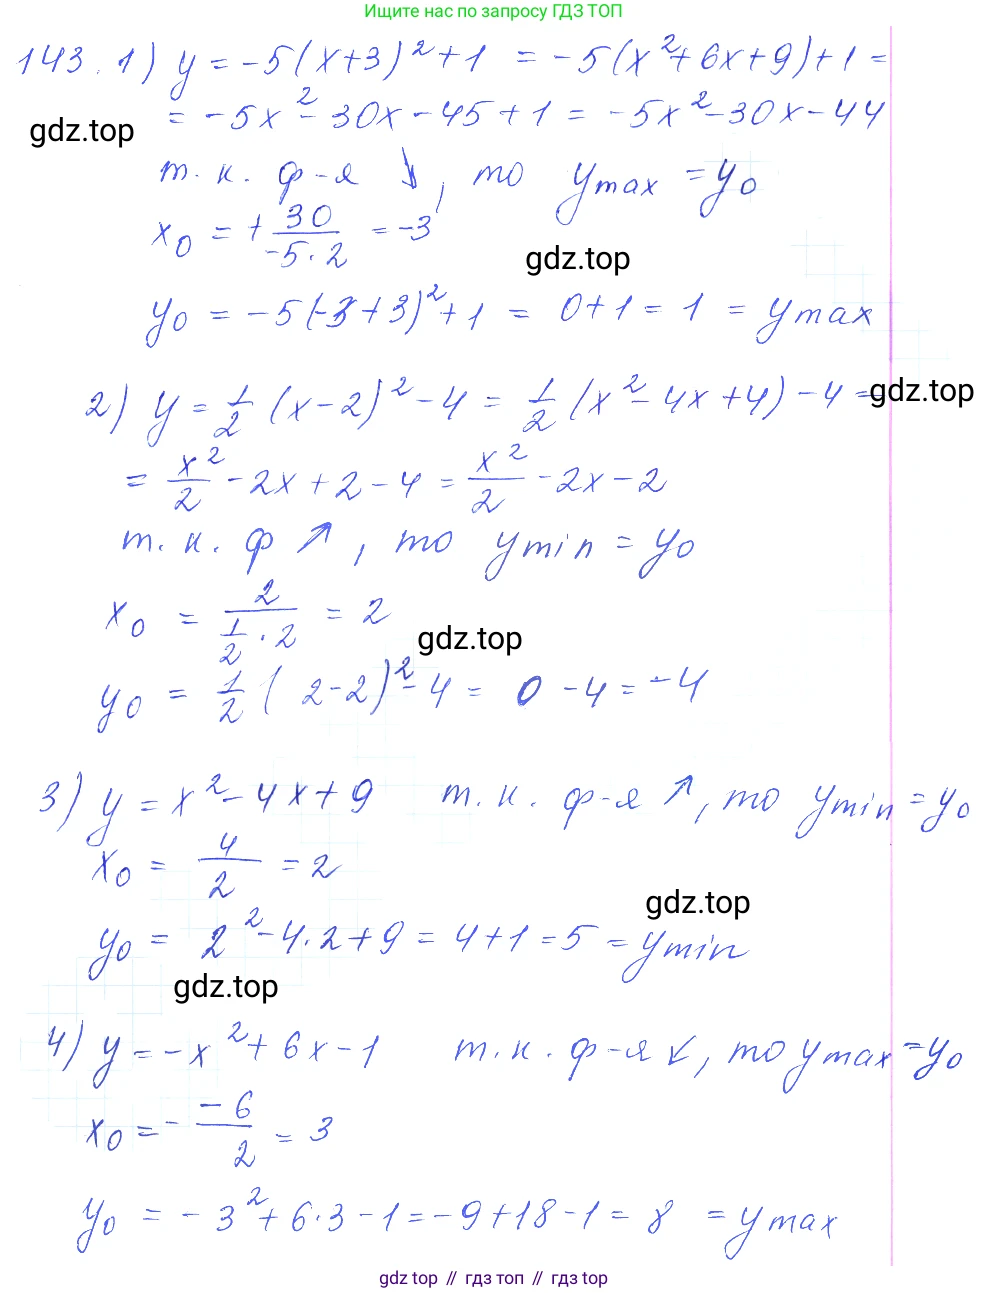 Ищите нас по запросу ГДЗ ТОП
143. 1) y = -5(x+3)² + 1 = -5(x² + 6x + 9) + 1 =
= -5x² - 30x - 45 + 1 = -5x² - 30x - 44
gdz.top
т. к. ф-я ↓, то y max = y₀
x₀ = + 30/(-5·2) = -3
gdz.top
y₀ = -5(-3+3)² + 1 = 0 + 1 = 1 = y max
2) y = 1/2 (x-2)² - 4 = 1/2 (x² - 4x + 4) - 4 =
gdz.top
= x²/2 - 2x + 2 - 4 = x²/2 - 2x - 2
т. к. ф ↗, то y min = y₀
x₀ = 2/(1/2 · 2) = 2
gdz.top
y₀ = 1/2 (2-2)² - 4 = 0 - 4 = -4
3) y = x² - 4x + 9 т. к. ф-я ↗, то y min = y₀
x₀ = 4/2 = 2
gdz.top
y₀ = 2² - 4·2 + 9 = 4 + 1 = 5 = y min
gdz.top
4) y = -x² + 6x - 1 т. к. ф-я ↙, то y max = y₀
x₀ = - -6/2 = 3
y₀ = -3² + 6·3 - 1 = -9 + 18 - 1 = 8 = y max
gdz top // гдз топ // gdz top